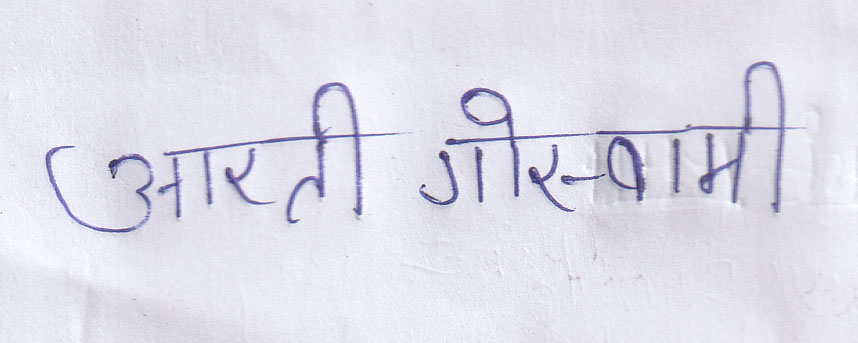 आरती गोस्वामी